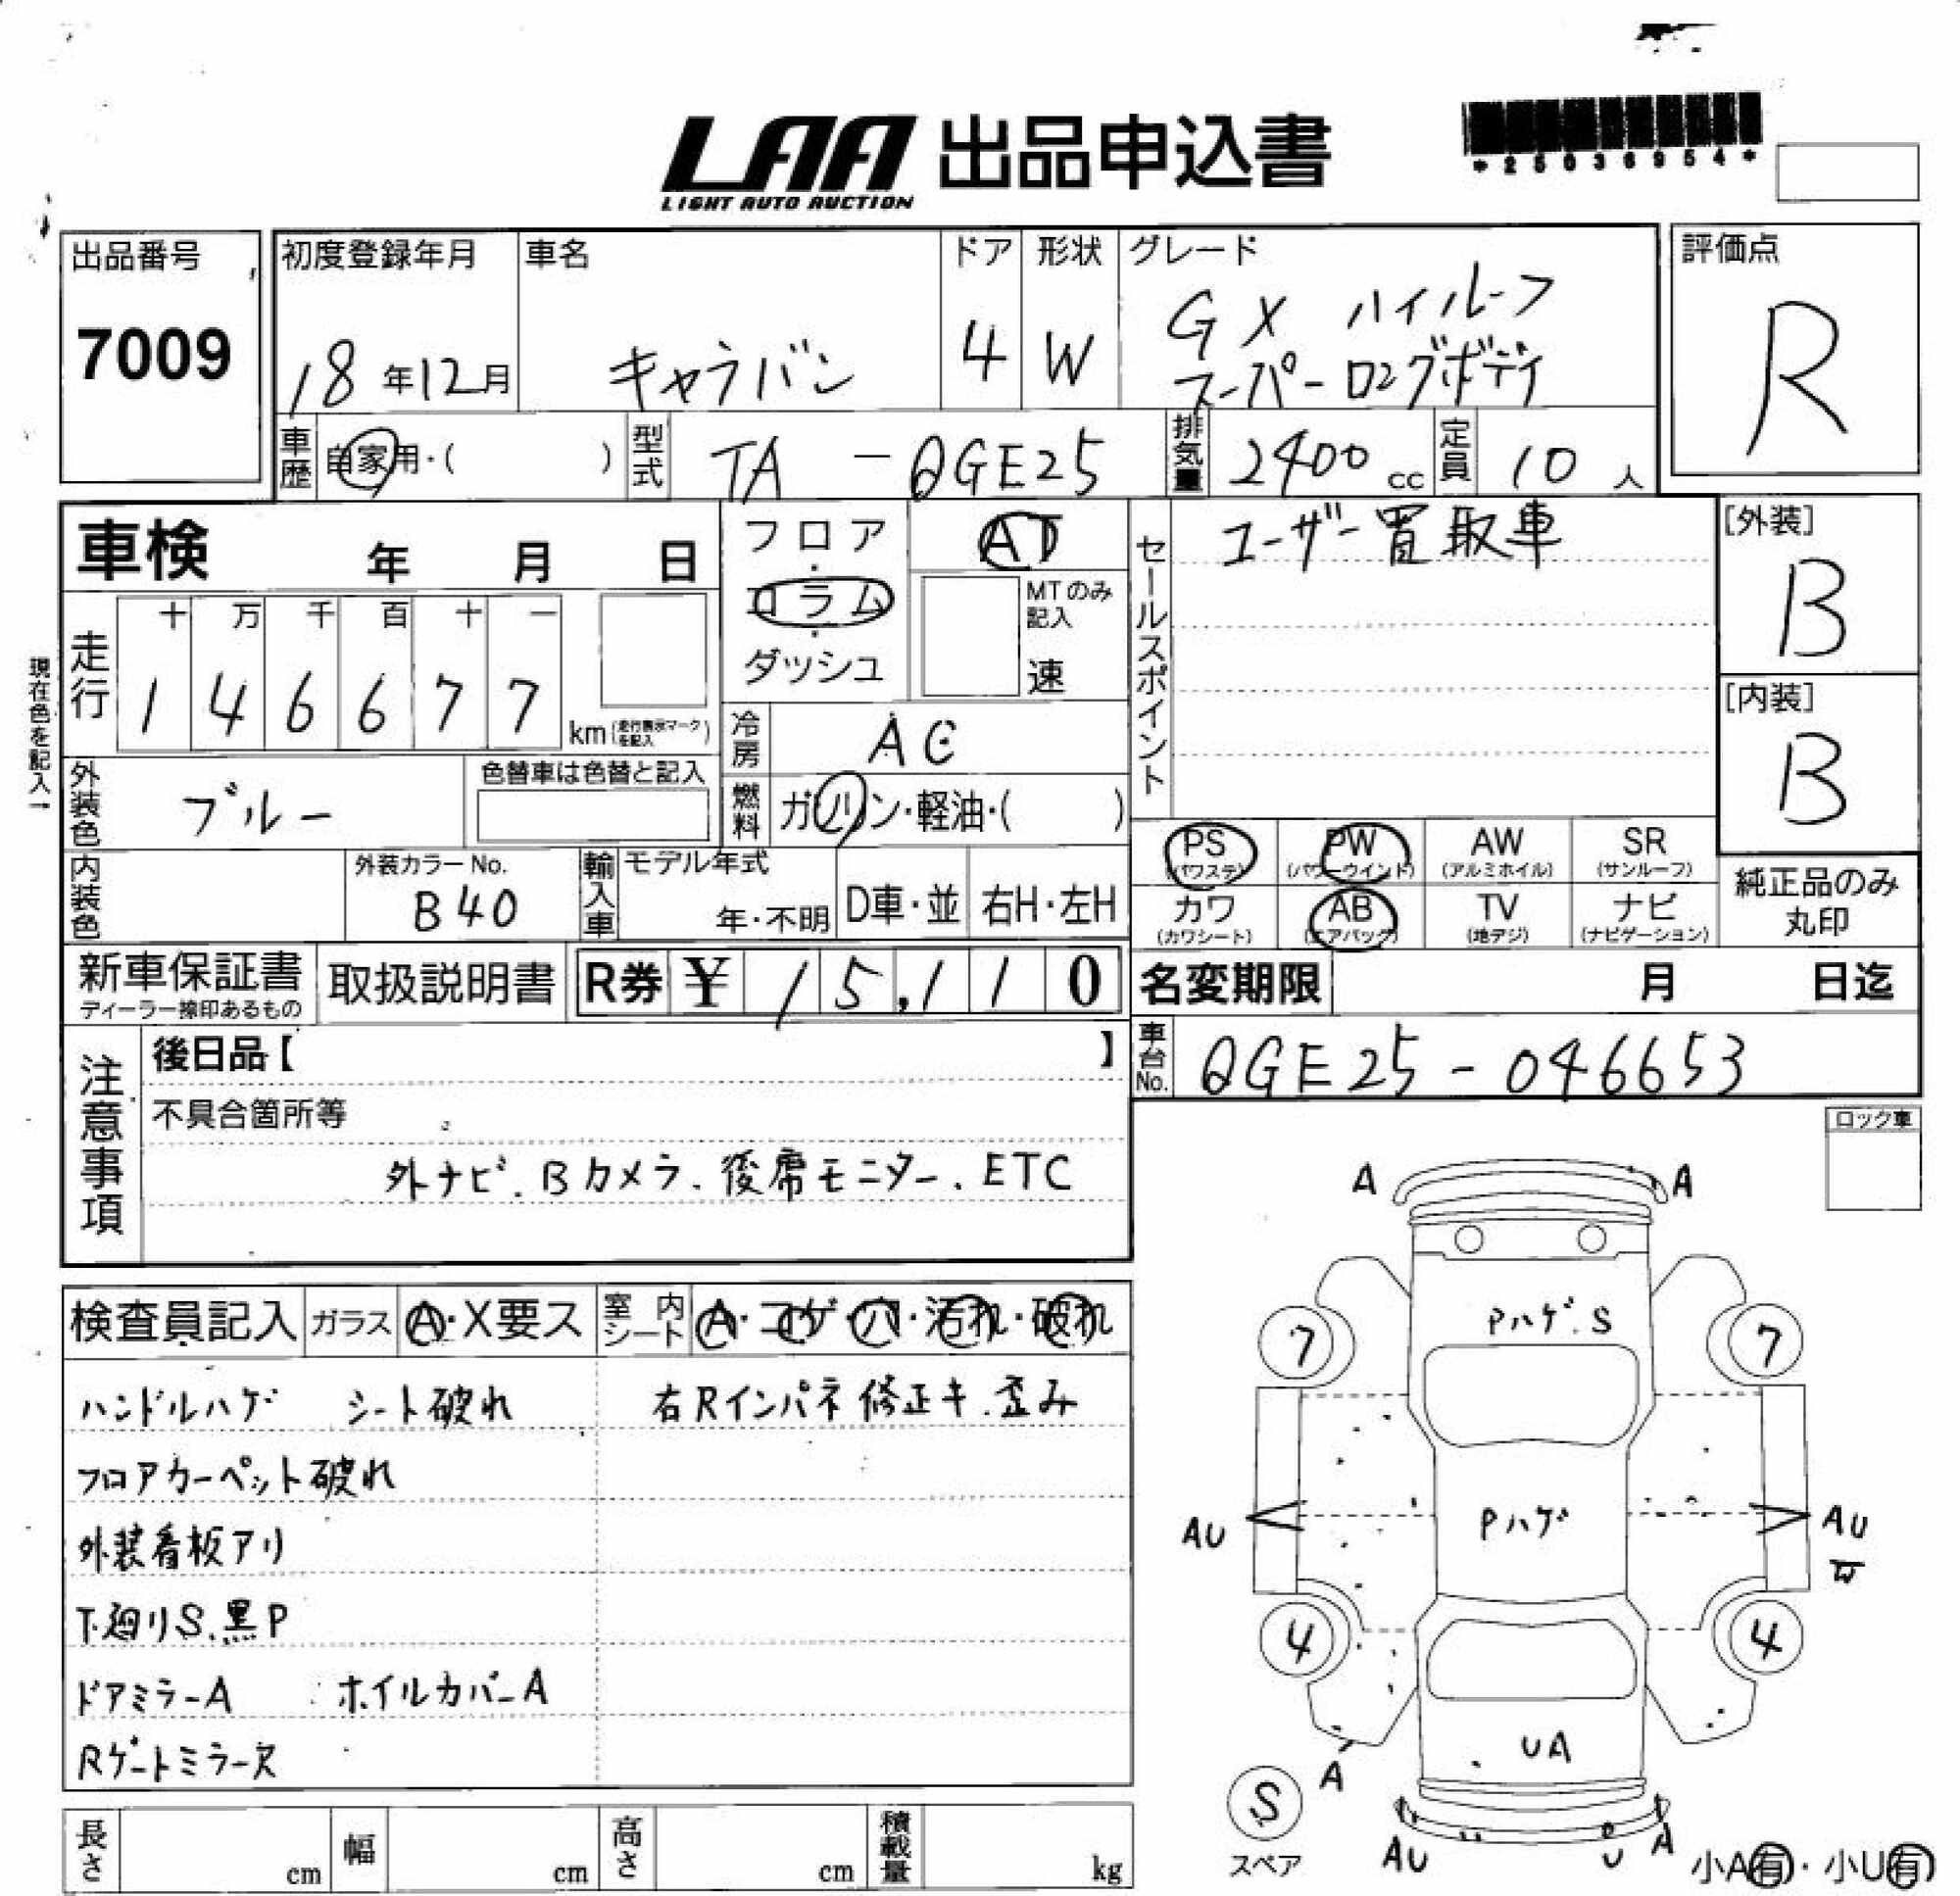 LAA 出品申込書
LIGHT AUTO AUCTION
*25036954*
出品番号
7009
初度登録年月
18年12月
車名
キャラバン
ドア
4
形状
W
グレード
GX ハイルーフ
スーパーロングボディ
評価点
R
車歴 自家用・( )
型式 TA - QGE25
排気量 2400 cc
定員 10 人
車検 年 月 日
フロア・コラム・ダッシュ
AT
MTのみ記入
速
セールスポイント
ユーザー買取車
[外装]
B
[内装]
B
現在色を記入→
走行
十 万 千 百 十 一
1 4 6 6 7 7
km (走行表示マークを記入)
冷房 AC
外装色 ブルー
色替車は色替と記入
燃料 ガソリン・軽油・( )
PS (パワステ)
PW (パワーウインド)
AW (アルミホイル)
SR (サンルーフ)
カワ (カワシート)
AB (エアバッグ)
TV (地デジ)
ナビ (ナビゲーション)
純正品のみ丸印
内装色
外装カラーNo.
B40
輸入車
モデル年式
年・不明
D車・並
右H・左H
新車保証書
ディーラー捺印あるもの
取扱説明書
R券 ¥ 15,110
名変期限 月 日迄
車台No. QGE25-046653
注意事項
後日品【 】
不具合箇所等
外ナビ.Bカメラ.後席モニター.ETC
ロック車
検査員記入
ガラス A・X要ス
室内シート A・コゲ・穴・汚れ・破れ
ハンドルハゲ シート破れ
右Rインパネ修正キ.歪み
フロアカーペット破れ
外装看板アリ
下廻りS.黒P
ドアミラーA ホイルカバーA
Rゲートミラーヌ
A A
Pハゲ.S
7 7
Pハゲ
AU AU
4 4
UA
A
S
スペア
AU U A
小A有・小U有
長さ cm
幅 cm
高さ cm
積載量 kg